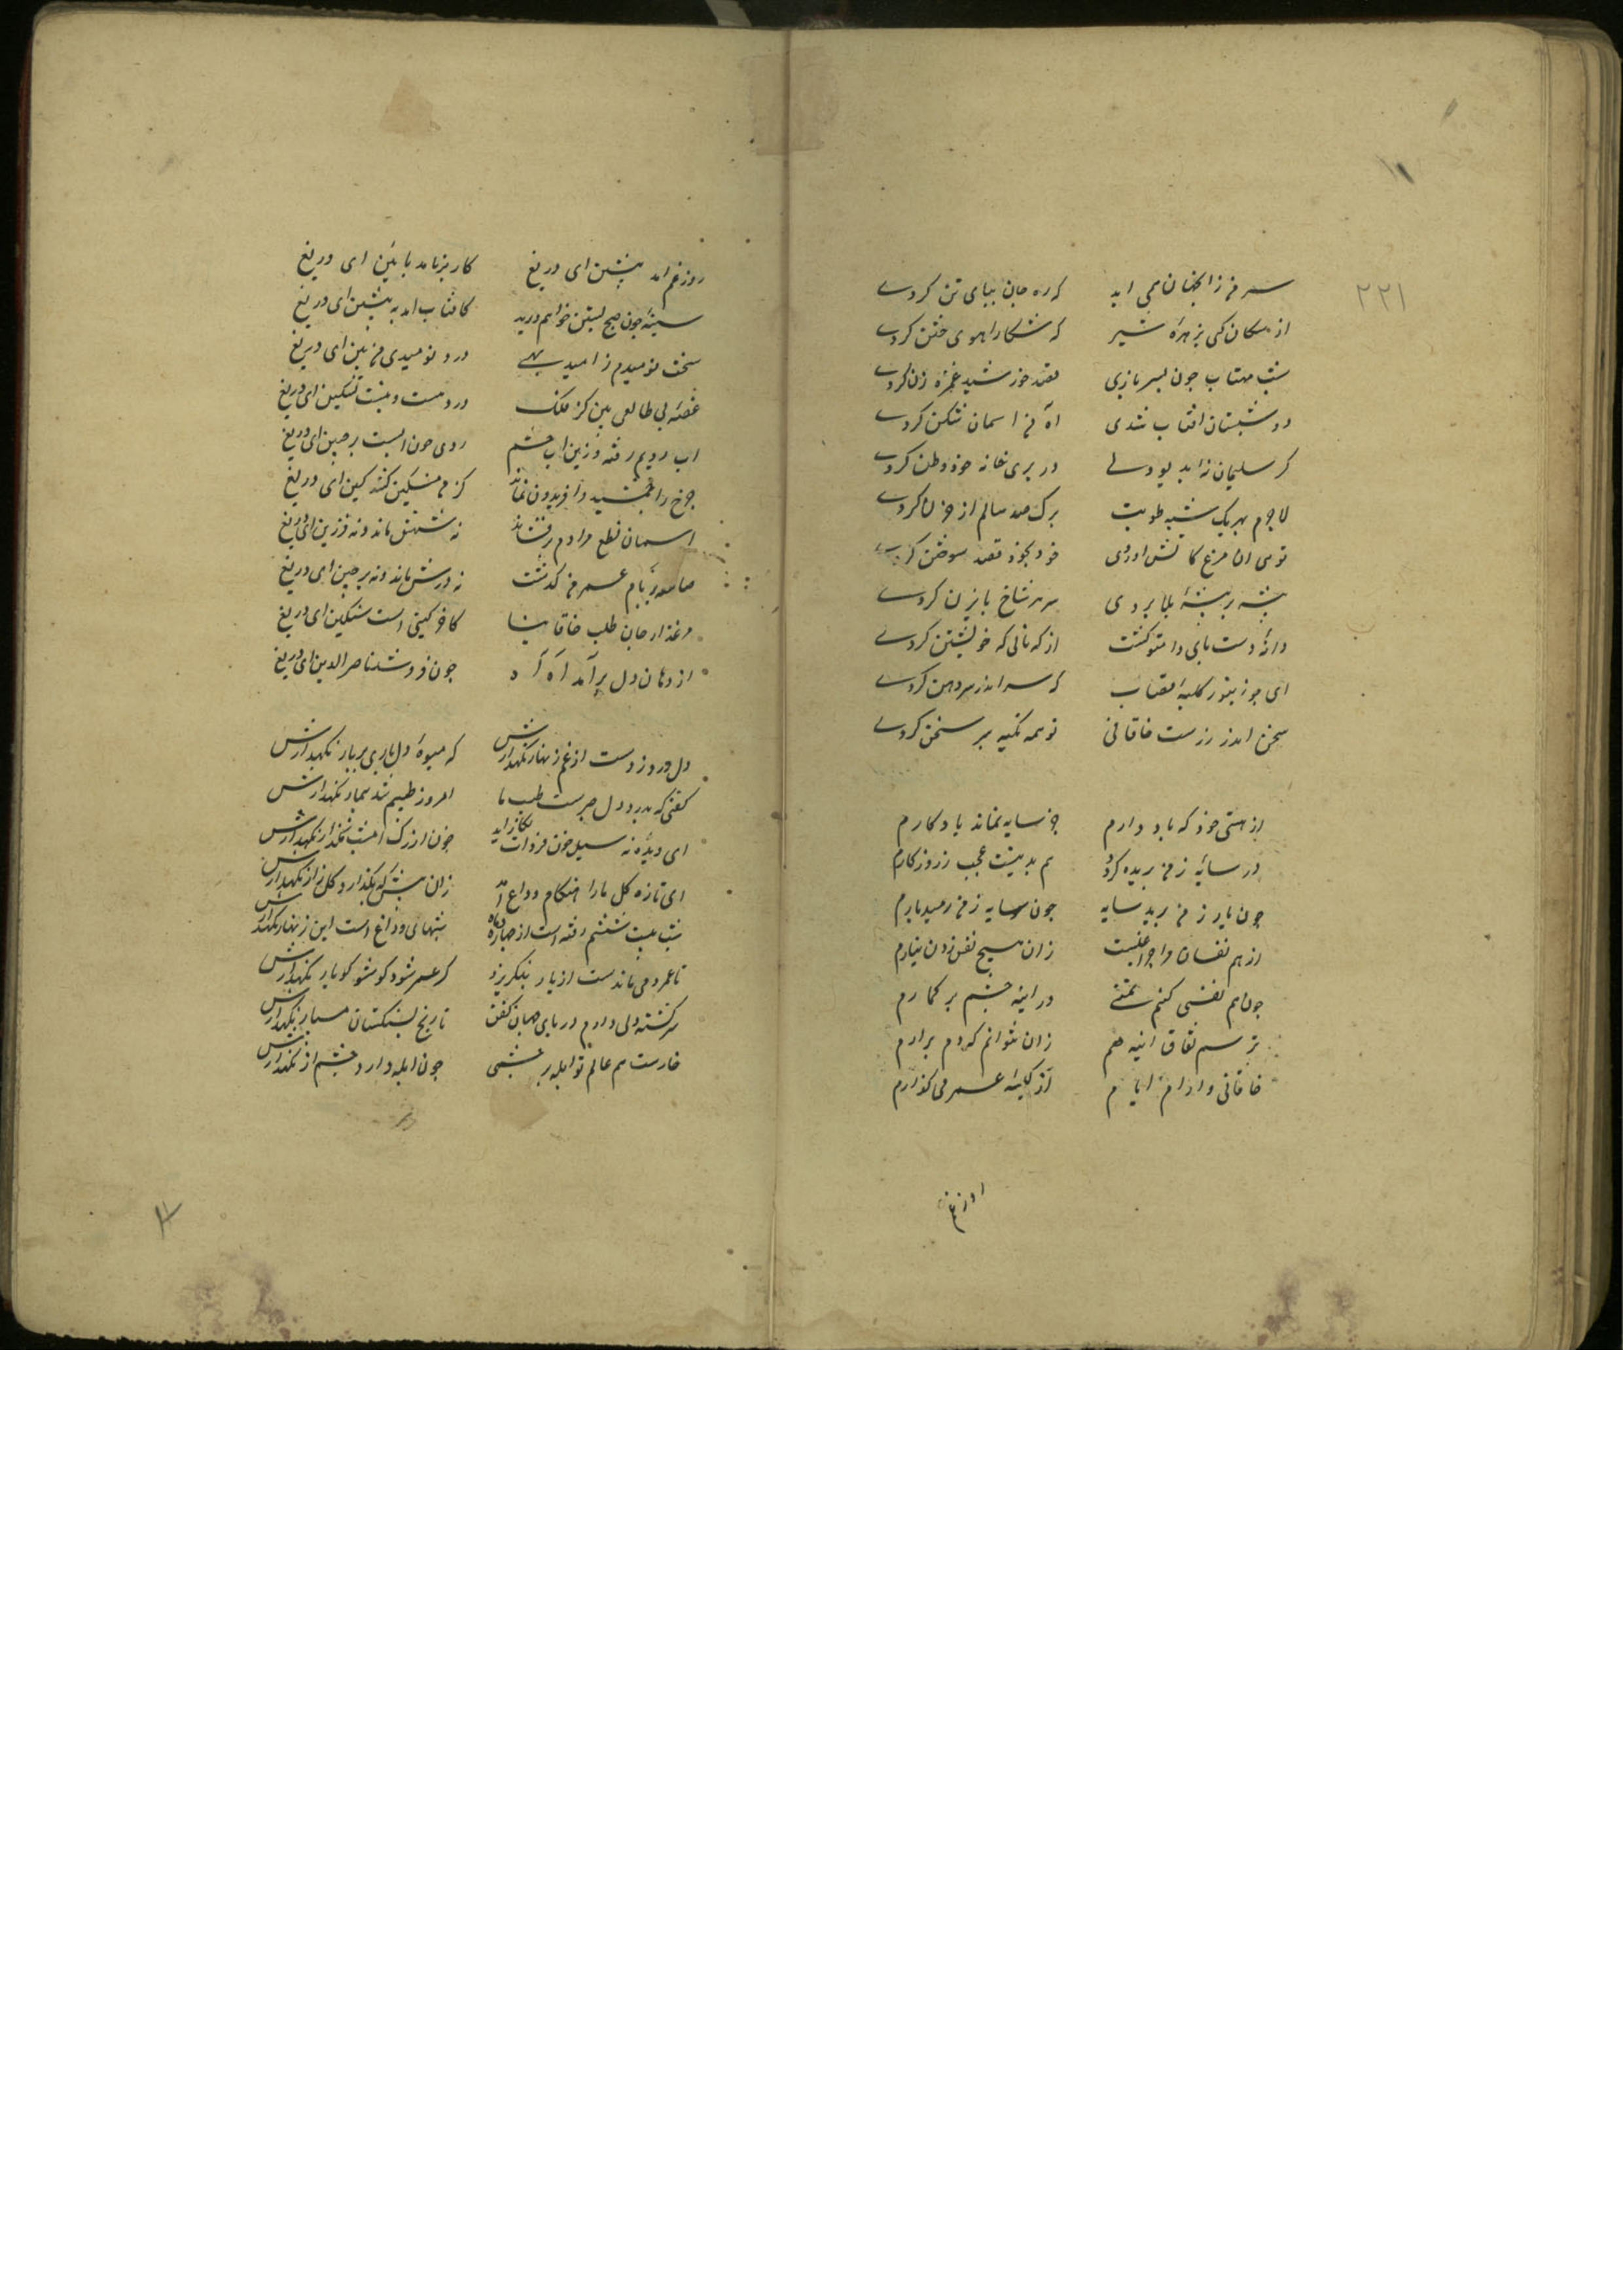 ۲۲۱
سر من زانجهان همی اید که ره جان بپای تن کردے
از سکان کی بزهرهٔ شیر که شکار اهوی ختن کردے
شب مهتاب چون بسر بازی قصد خورشید غمزه زن کردے
در شبستان افتاب شدی اه من اسمان شکن کردے
کر سلیمان نهٔ بدیو دلے در پری خانه خود وطن کردے
لاجرم بهر یک شبه طویت برک صد ساله از حزن کردے
توی ان مرغ کاتش اوردی خود بخود قصد سوختن کردے
بیشه بیشه بلا بردی سر هر شاخ بابزن کردے
دانهٔ دست پای دام تو کشت از که نالی که خویشتن کردے
ای جو زنبور کلبهٔ قصاب که سر اندر سر دهن کردے
سخن اندر زرست خاقانی تو همه تکیه بر سخن کردے
از هستی خود که یاد دارم جز سایه نماند یادکارم
ور سایه ز من بریده کردد هم بدنیست عجب ز روزکارم
چون یار ز من برید سایه چون سایه ز من رمید یارم
از هم نفسان مرا چراغیست زان هیچ نفس زدن نیارم
چون هم نفسی کنم تمنے در اینه چشم بر کمارم
ترسم نفاق اینه هم زان نتوانم که دم برارم
خاقانی وار دام ایام از کیسهٔ عمر می کذارم
روز غم
روز غم امد پیشین ای دریغ کار برنامد بایین ای دریغ
سینه چون صبح پسین خواهم درید کافتاب امد به پیشین ای دریغ
سخت نومیدم ز امید بهے درد نومیدی من بین ای دریغ
غصهٔ بی طالعی بین کز فلک درد هست و نیست تسکین ای دریغ
اب رویم رفته وزین اب چشم روی چون ابست پر چین ای دریغ
چرخ را جمشید و افریدون نماند کز من مسکین کشد کین ای دریغ
اسمان نطع مرادم برفشاند نه شهش ماند و نه فرزین ای دریغ
صاعقه بر بام عمر من کذشت نه درش ماند و نه پرچین ای دریغ
مرغذار جان طلب خاقانیا کاخر کیتی است سنکین ای دریغ
از دهان دل برآمد آه آه چون فرو شد ناصر الدین ای دریغ
دل درد زدست از غم زنهار نکهدارش که میوهٔ دل باری پر بار نکهدارش
کفتی که بدرد دل صبرست طبیب ما امروز طبیبم شد بیمار نکهدارش
ای دیده نه سیل خون فردات بکار اید چون از رک امشب نکذار نکهدارش
ای تازه کل ما را هنکام وداع امد زان پیش که بکذارد کلزار نکهدارش
شب بیست ششم رفته است از چهارده ماه شبهای وداع است این زنهار نکهدارش
تا عمر دمی ماندست از یار بنکریزد کر عمر شود کو شو کو یار نکهدارش
سرکشته دلی دارم در پای جهان کفتی تا رنج بشکستان مسپار نکهدارش
خارست هم عالم تو ابله بر چشمی چون ابله دارد چشم از خار نکهدارش